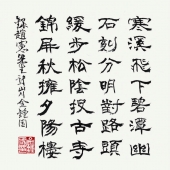 寒溪飛下碧潭幽
石刻分明對路頭
緩步松陰投古寺
錦屏秋擁夕陽樓